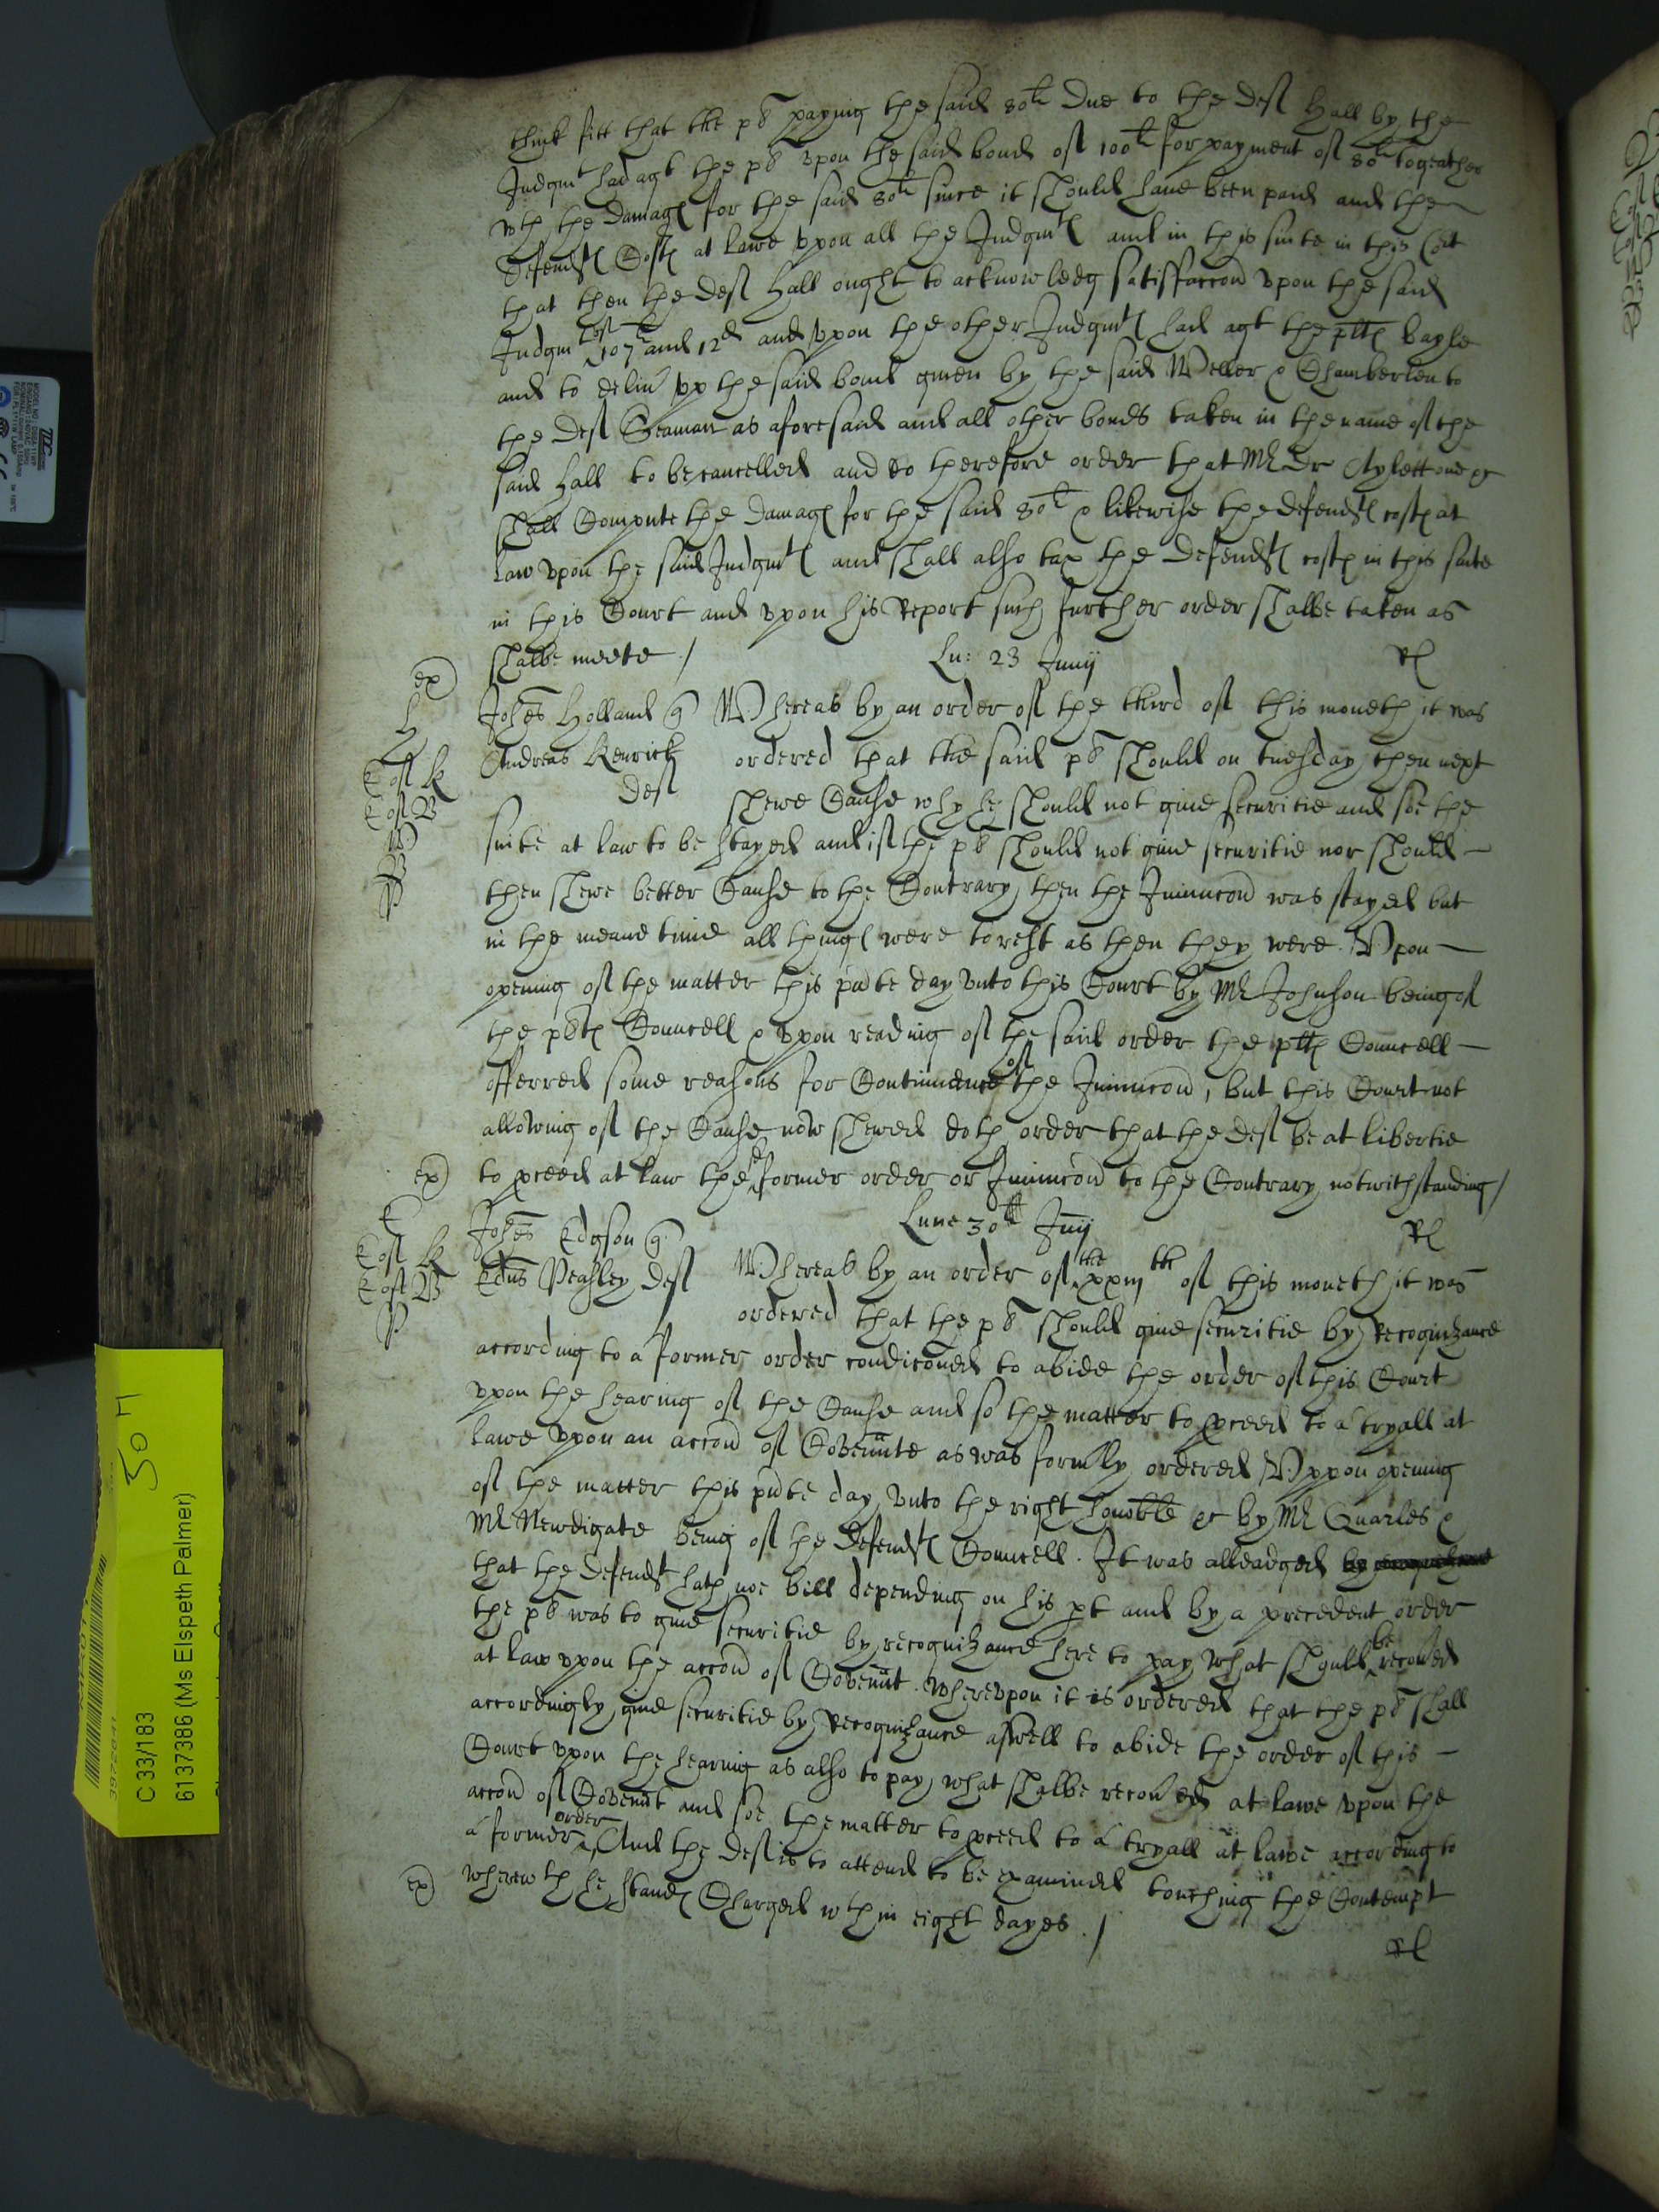 think fitt that the plt paying the said 80li due to the deft Hall by the
Judgmt had agt the plt vpon the said bond of 100li for payment of 80li togeather
wth the damages for the said 80li since it should haue been paid and the
Defendts Costs at lawe vpon all the Judgmts and in this suite in this Cort
that then the deft Hall ought to acknowledg satisfaccon vpon the said
Judgmt of 107li and 12d and vpon the other Judgmts had agt the plts bayle
and to deliu vp the said bond giuen by the said Weller & Chamberlen to
the deft Seaman as aforesaid and all other bonds taken in the name of the
said Hall to be cancelled and do therefore order that Mr Dr Aylett one &c
shall Compute the damages for the said 80li & likewise the defendts costs at
law vpon the said Judgmts and shall also tax the Defendts costs in this suite
in this Court and vpon his Report such further order shalbe taken as
shalbe meete ./
Lu: 23 Junij
Rl
ex
H
Johes Holland q
Whereas by an order of the third of this moneth it was
Andreas Kenrick
deft
ordered that the said plt should on tuesday then next
shewe Cause why he should not giue securitie and soe the
suite at law to be stayed and if the plt should not giue securitie nor should
then shewe better Cause to the Contrary then the Iniunccon was stayed but
in the meane time all things were to rest as then they were. Vpon
opening of the matter this pnte day vnto this Court by Mr Johnson being of
the plts Councell & vpon reading of the said order the plts Councell
offerred some reasons for Continuance of the Iniunccon, but this Court not
allowing of the Cause now shewed doth order that the deft be at libertie
ex
to pceed at law the sd former order or Iniunccon to the Contrary notwithstanding /
Lune 30th Junij
Rl
E
Johes Edgson q
Edus Peasley deft
Whereas by an order of the xxiijth of this moneth it was
ordered that the plt should giue securitie by Recognizance
according to a former order condiconed to abide the order of this Court
vpon the hearing of the Cause and so the matter to pceed to a tryall at
lawe vpon an accon of Covennte as was formlly ordered Vppon opening
of the matter this pnte day vnto the right honoble &c by Mr Quarles &
Mr Newdigate being of the Defendts Councell. It was alleadged
that the defendt hath noe bill depending on his pt and by a precedent order
the plt was to giue securitie by recognizance here to pay what should be recoued
at law vpon the accon of Covennt. wherevpon it is ordered that the plt shall
accordingly giue securitie by Recognizance aswell to abide the order of this
Court vpon the hearing as also to pay what shalbe recoued at lawe vpon the
accon of Covennt and soe the matter to pceed to a tryall at lawe according to
a former order And the deft is to attend to be examined touching the Contempt
ex
wherewth he stands Charged wthin eight dayes ./
Rl
C 33/183
6137386 (Ms Elspeth Palmer)